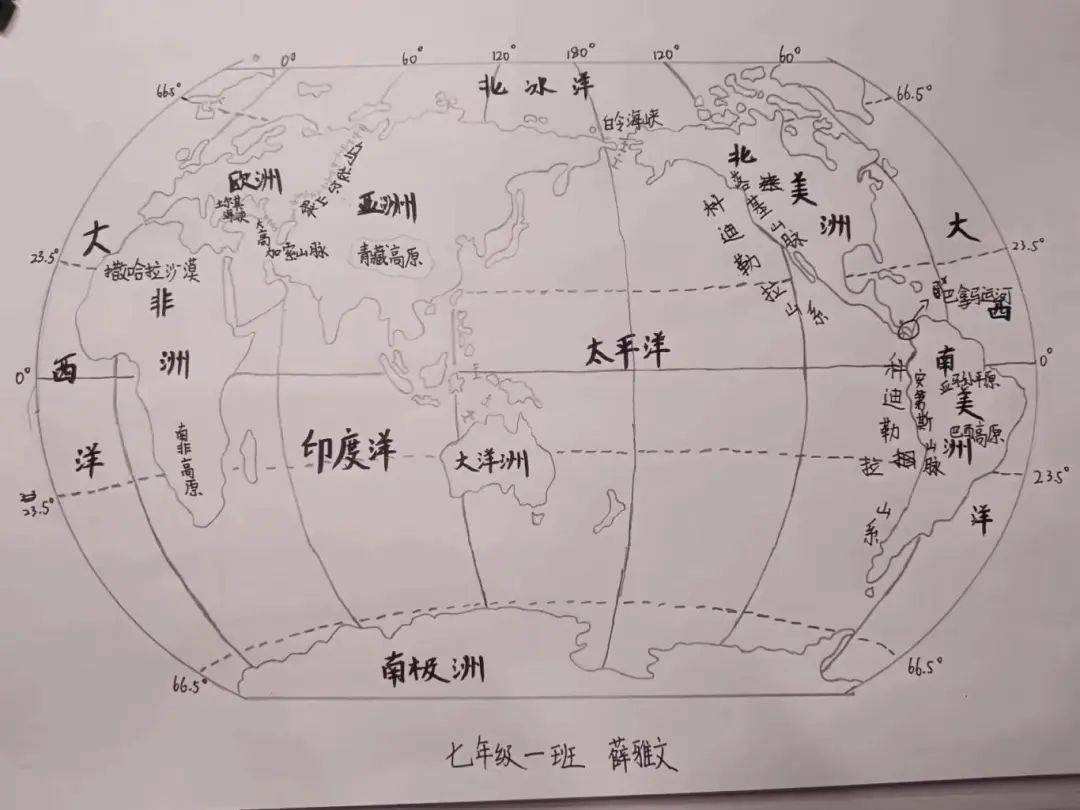 0° 60° 120° 180° 120° 60°
66.5°
66.5°
北冰洋
白令海峡
欧洲
亚洲
乌拉尔山脉
土耳其海峡
大高加索山脉
青藏高原
北美洲
落基山脉
科迪勒拉山系
大西洋
大西洋
23.5°
23.5°
撒哈拉沙漠
非洲
巴拿马运河
太平洋
0°
0°
南美洲
亚马孙平原
科迪勒拉山系
安第斯山脉
巴西高原
南非高原
印度洋
大洋洲
23.5°
23.5°
南极洲
66.5°
66.5°
七年级一班 薛雅文